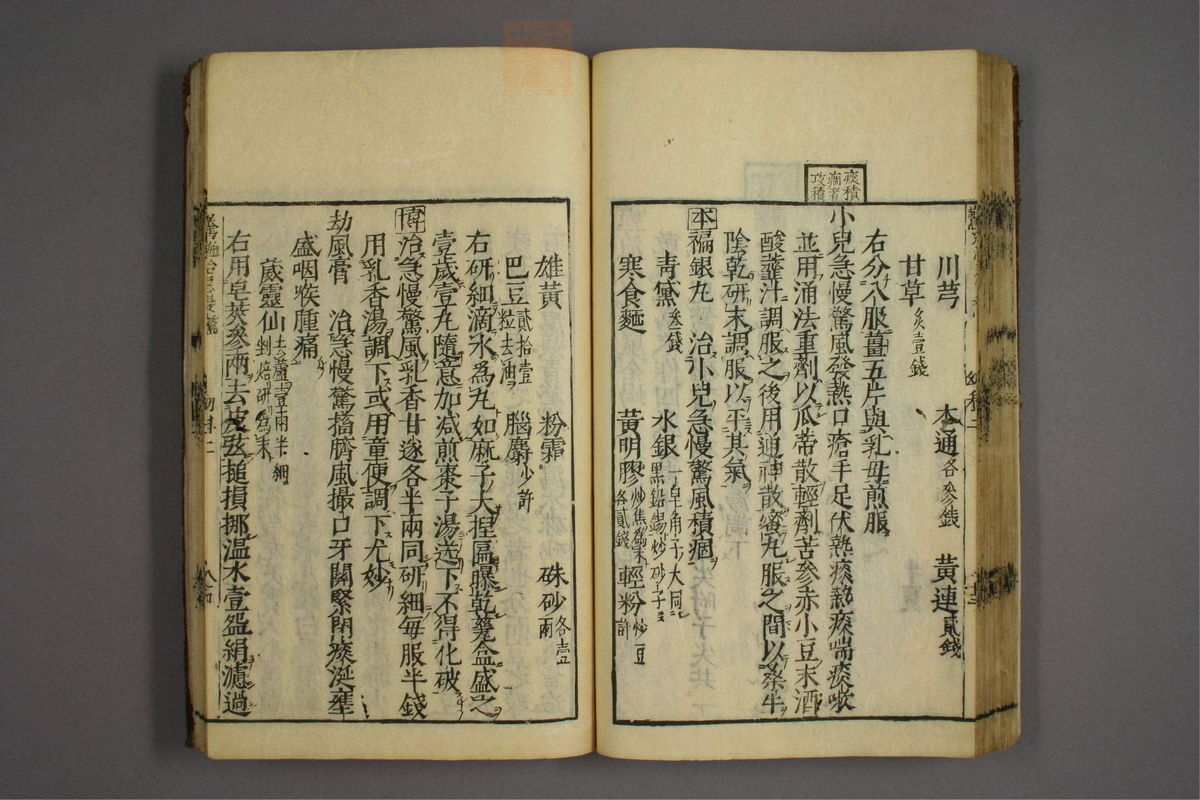 痰積
癇者
攻積
川芎 木通各叅錢 黃連貳錢
甘草炙壹錢
右分八服薑五片與乳母煎服
小兒急慢驚風發熱口瘡手足伏熱痰熱痰喘痰嗽
並用涌法重劑以瓜蒂散輕劑苦參赤小豆末酒
酸虀汁調服之後用通神散蜜丸服之間以桑牛
陰乾研末調服以平其氣
本 褊銀丸 治小兒急慢驚風積癇
青黛叄錢 水銀一皂角子大同黑鉛錫炒砂子
寒食麵 黃明膠炒焦為末各貳錢 輕粉炒豆許
雄黃 粉霜 硃砂各壹兩
巴豆貳拾壹粒去油 腦麝少許
右研細滴水為丸如麻子大捏匾曝乾甆盒盛之
壹歲壹丸隨意加减煎棗子湯送下不得化破
博 治急慢驚風乳香甘遂各半兩同研細每服半錢
用乳香湯調下或用童便調下尤妙
劫風膏 治急慢驚搐臍風撮口牙關緊閉痰涎壅
盛咽喉腫痛
葳靈仙去蘆壹兩半細剉焙研為末
右用皂莢叅兩去皮弦搥損挪溫水壹盌絹濾過